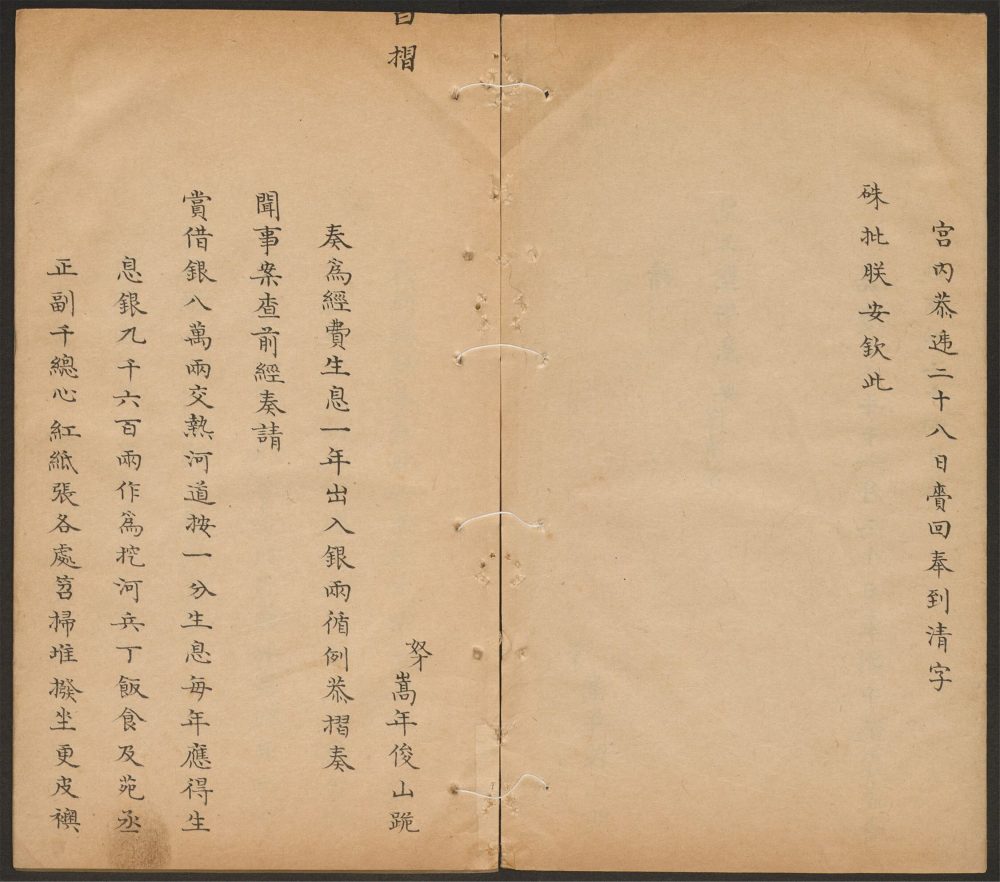 宮內恭遞二十八日賫回奉到清字
硃批朕安欽此
白摺
奴才嵩年俊山跪
奏爲經費生息一年出入銀兩循例恭摺奏
聞事案查前經奏請
賞借銀八萬兩交熱河道按一分生息每年應得生
息銀九千六百兩作爲挖河兵丁飯食及苑丞
正副千總心紅紙張各處笤掃堆撥坐更皮襖